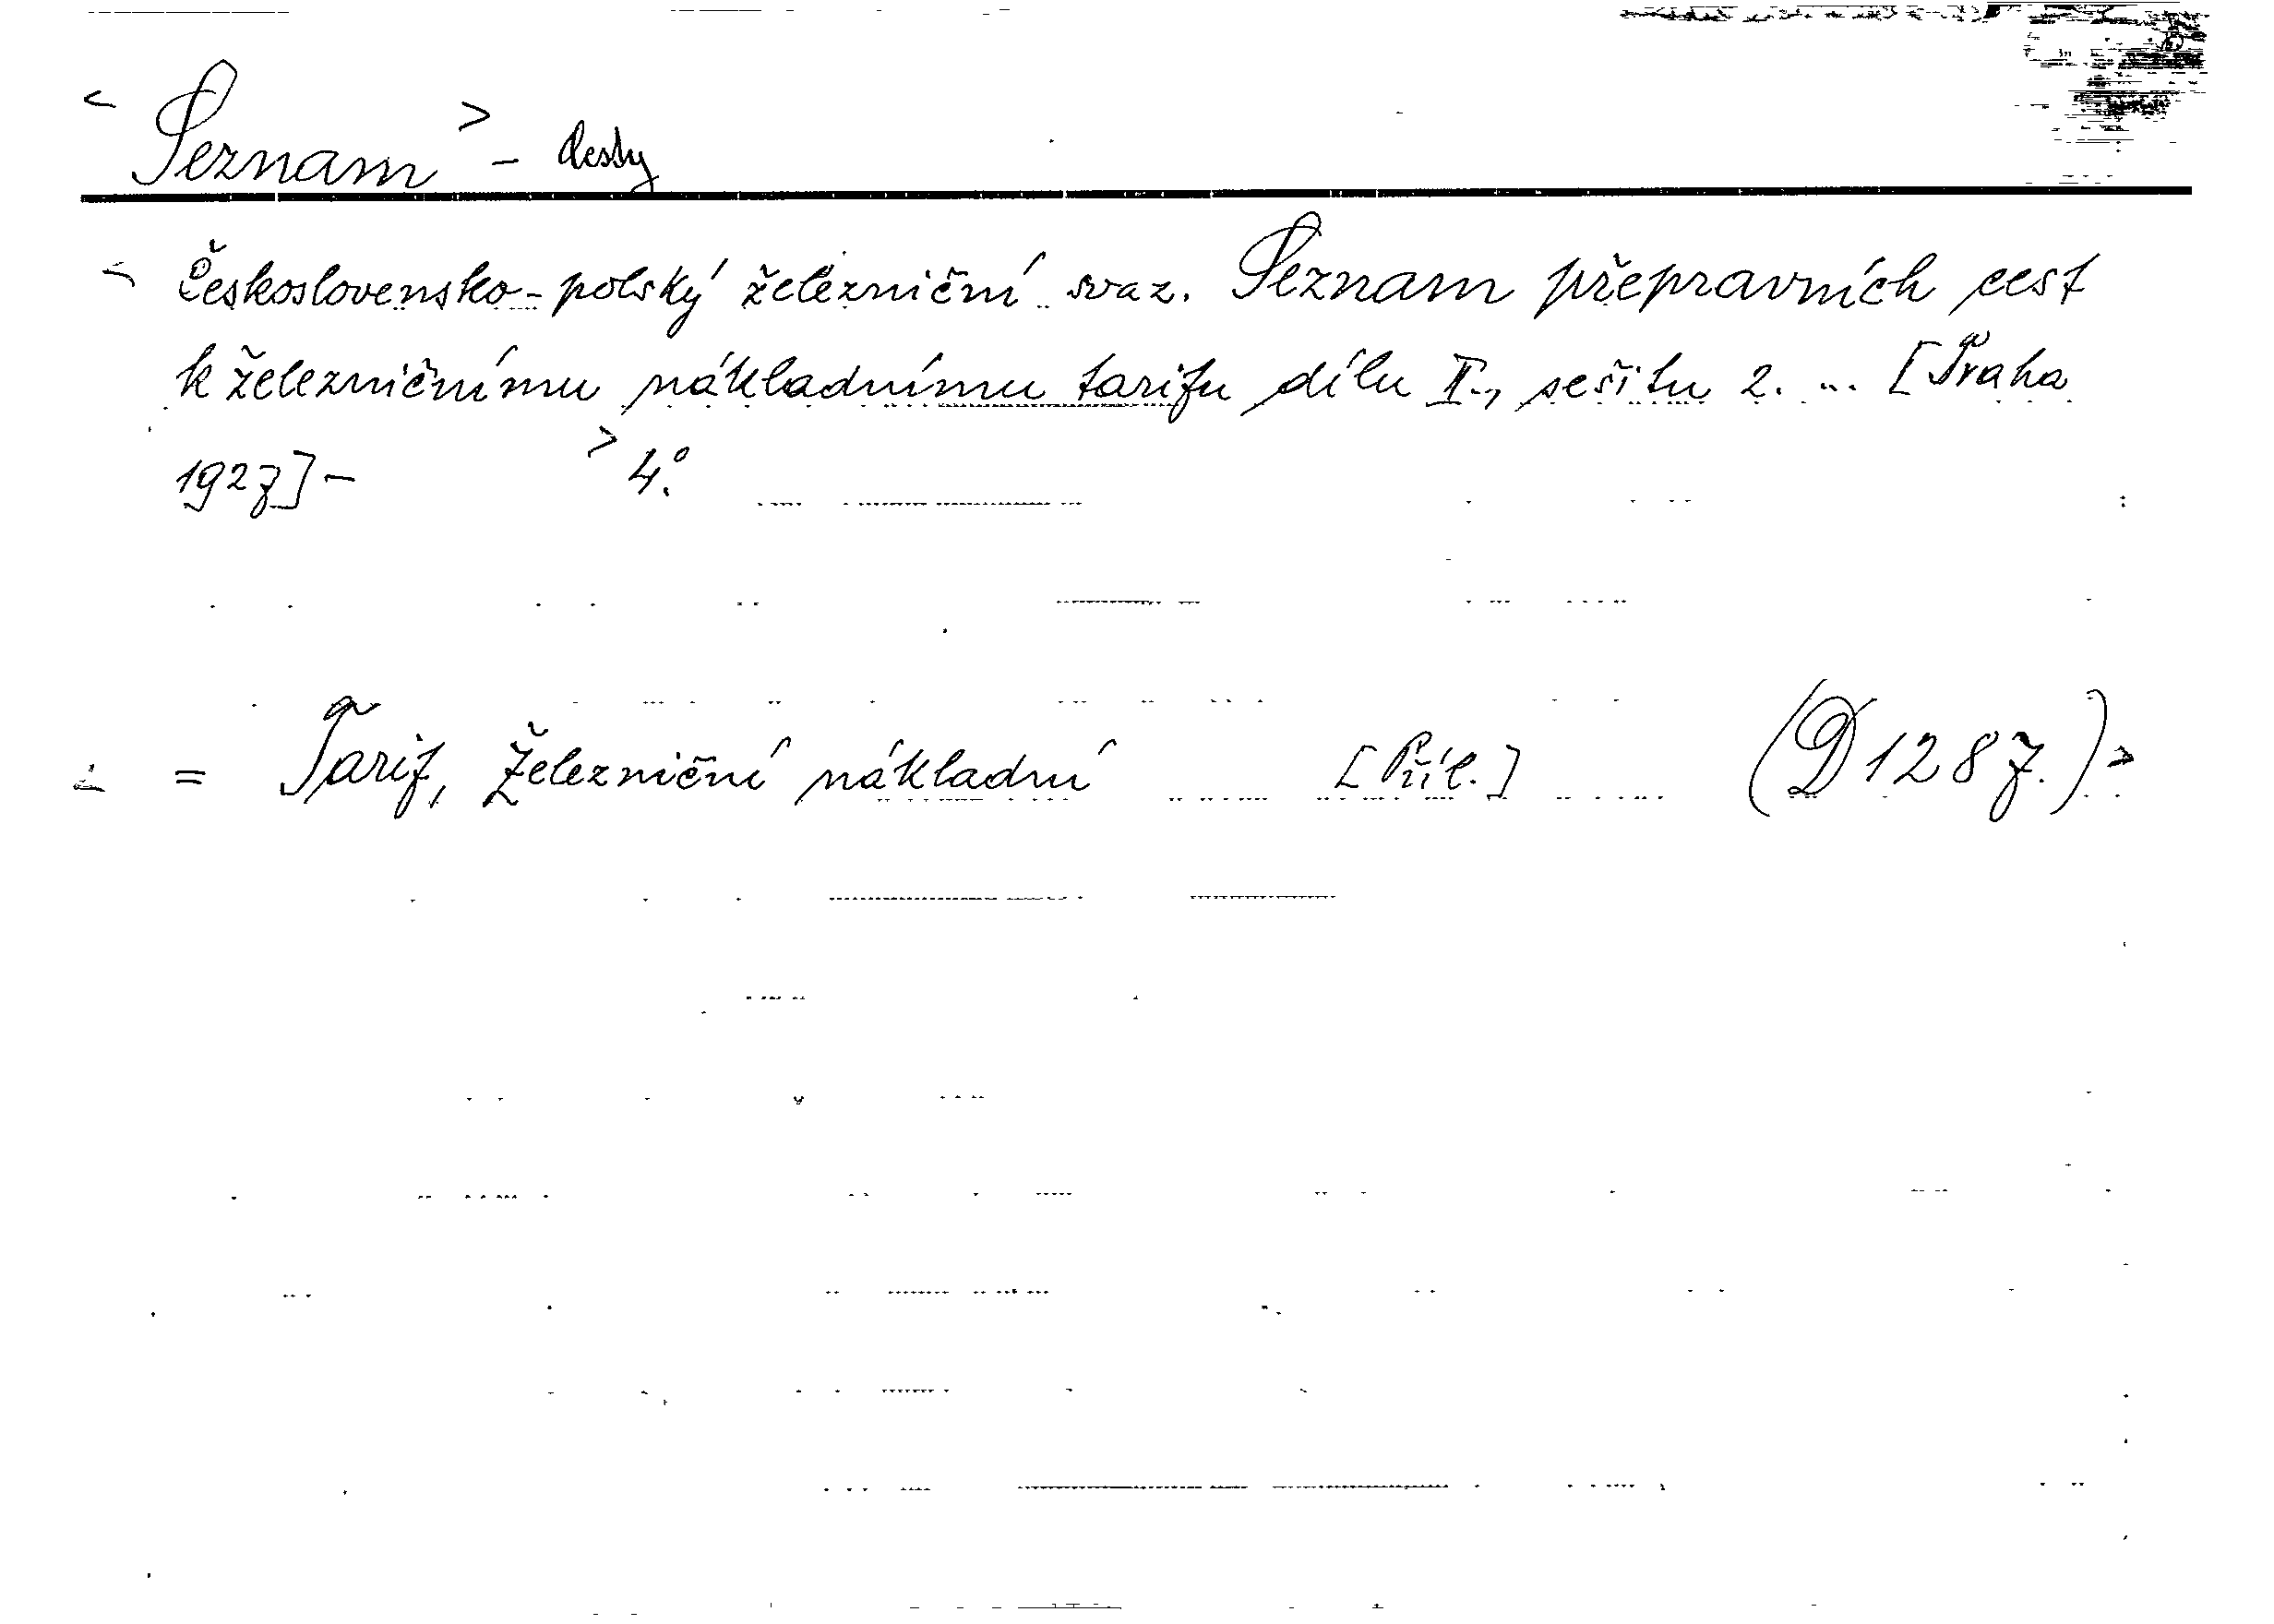 < Seznam > - cesty
< Československo-polský železniční svaz. Seznam přepravních cest
k železničnímu nákladnímu tarifu dílu II., sešitu 2. ... [Praha
1927] - > 4°.
= Tarif, železniční nákladní [Příl.] (D 1287.) >